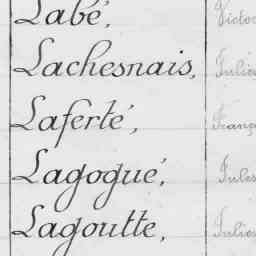 Labé, Victor
Lachesnais, Julien
Laferté, Franç
Lagogué, Jules
Lagoutte, Julien